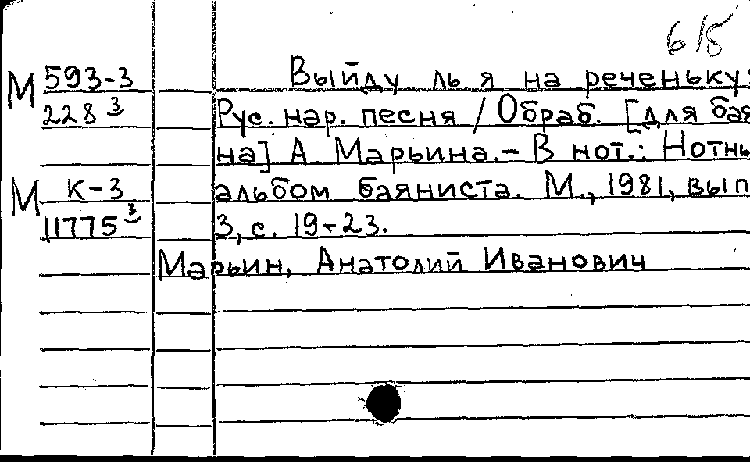 6/8
М 593-3
228 3
М К-3
11775 3
Выйду ль я на реченьку:
Рус. нар. песня / Обраб. [для бая
на] А. Марьина. – В нот.: Нотны
альбом баяниста. М., 1981, вып
3, с. 19-23.
Марьин, Анатолий Иванович